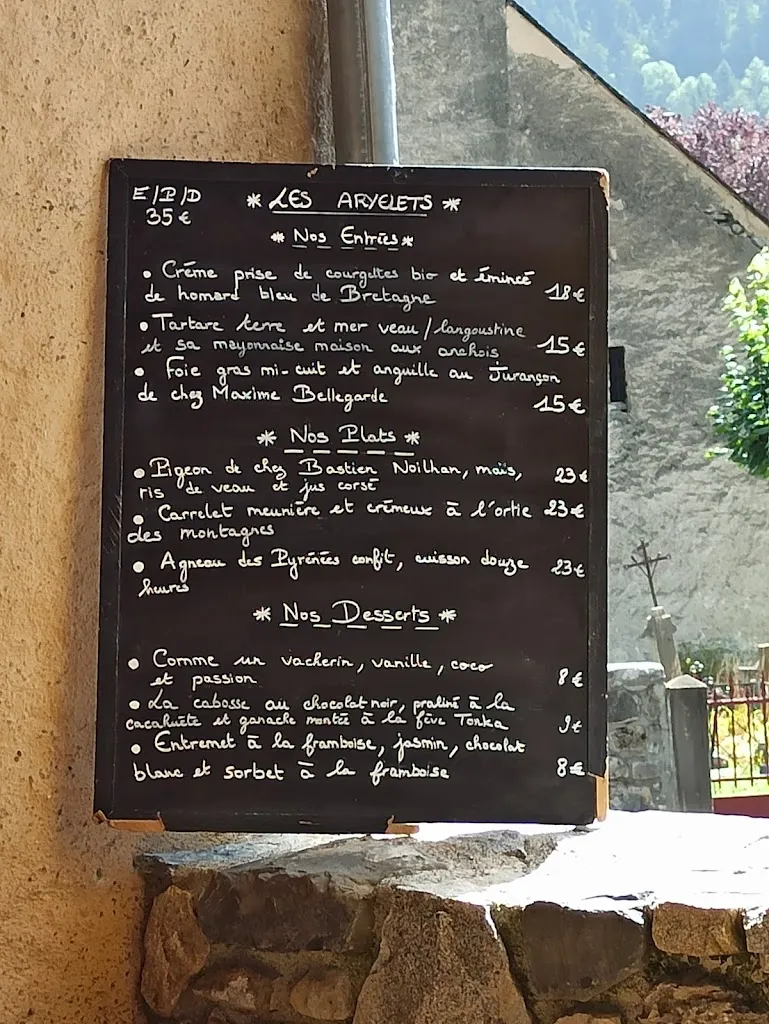 E/P/D
35 €
* LES ARYELETS *
* Nos Entrées *
• Crème prise de courgettes bio et émincé
de homard bleu de Bretagne 18 €
• Tartare terre et mer veau / langoustine
et sa mayonnaise maison aux anchois 15 €
• Foie gras mi-cuit et anguille au Jurançon
de chez Maxime Bellegarde 15 €
* Nos Plats *
• Pigeon de chez Bastien Noilhan, maïs, 23 €
ris de veau et jus corsé
• Carrelet meunière et crémeux à l'ortie 23 €
des montagnes
• Agneau des Pyrénées confit, cuisson douze 23 €
heures
* Nos Desserts *
• Comme un vacherin, vanille, coco
et passion 8 €
• La cabosse au chocolat noir, praliné à la
cacahuète et ganache montée à la fève Tonka 9 €
• Entremet à la framboise, jasmin, chocolat
blanc et sorbet à la framboise 8 €